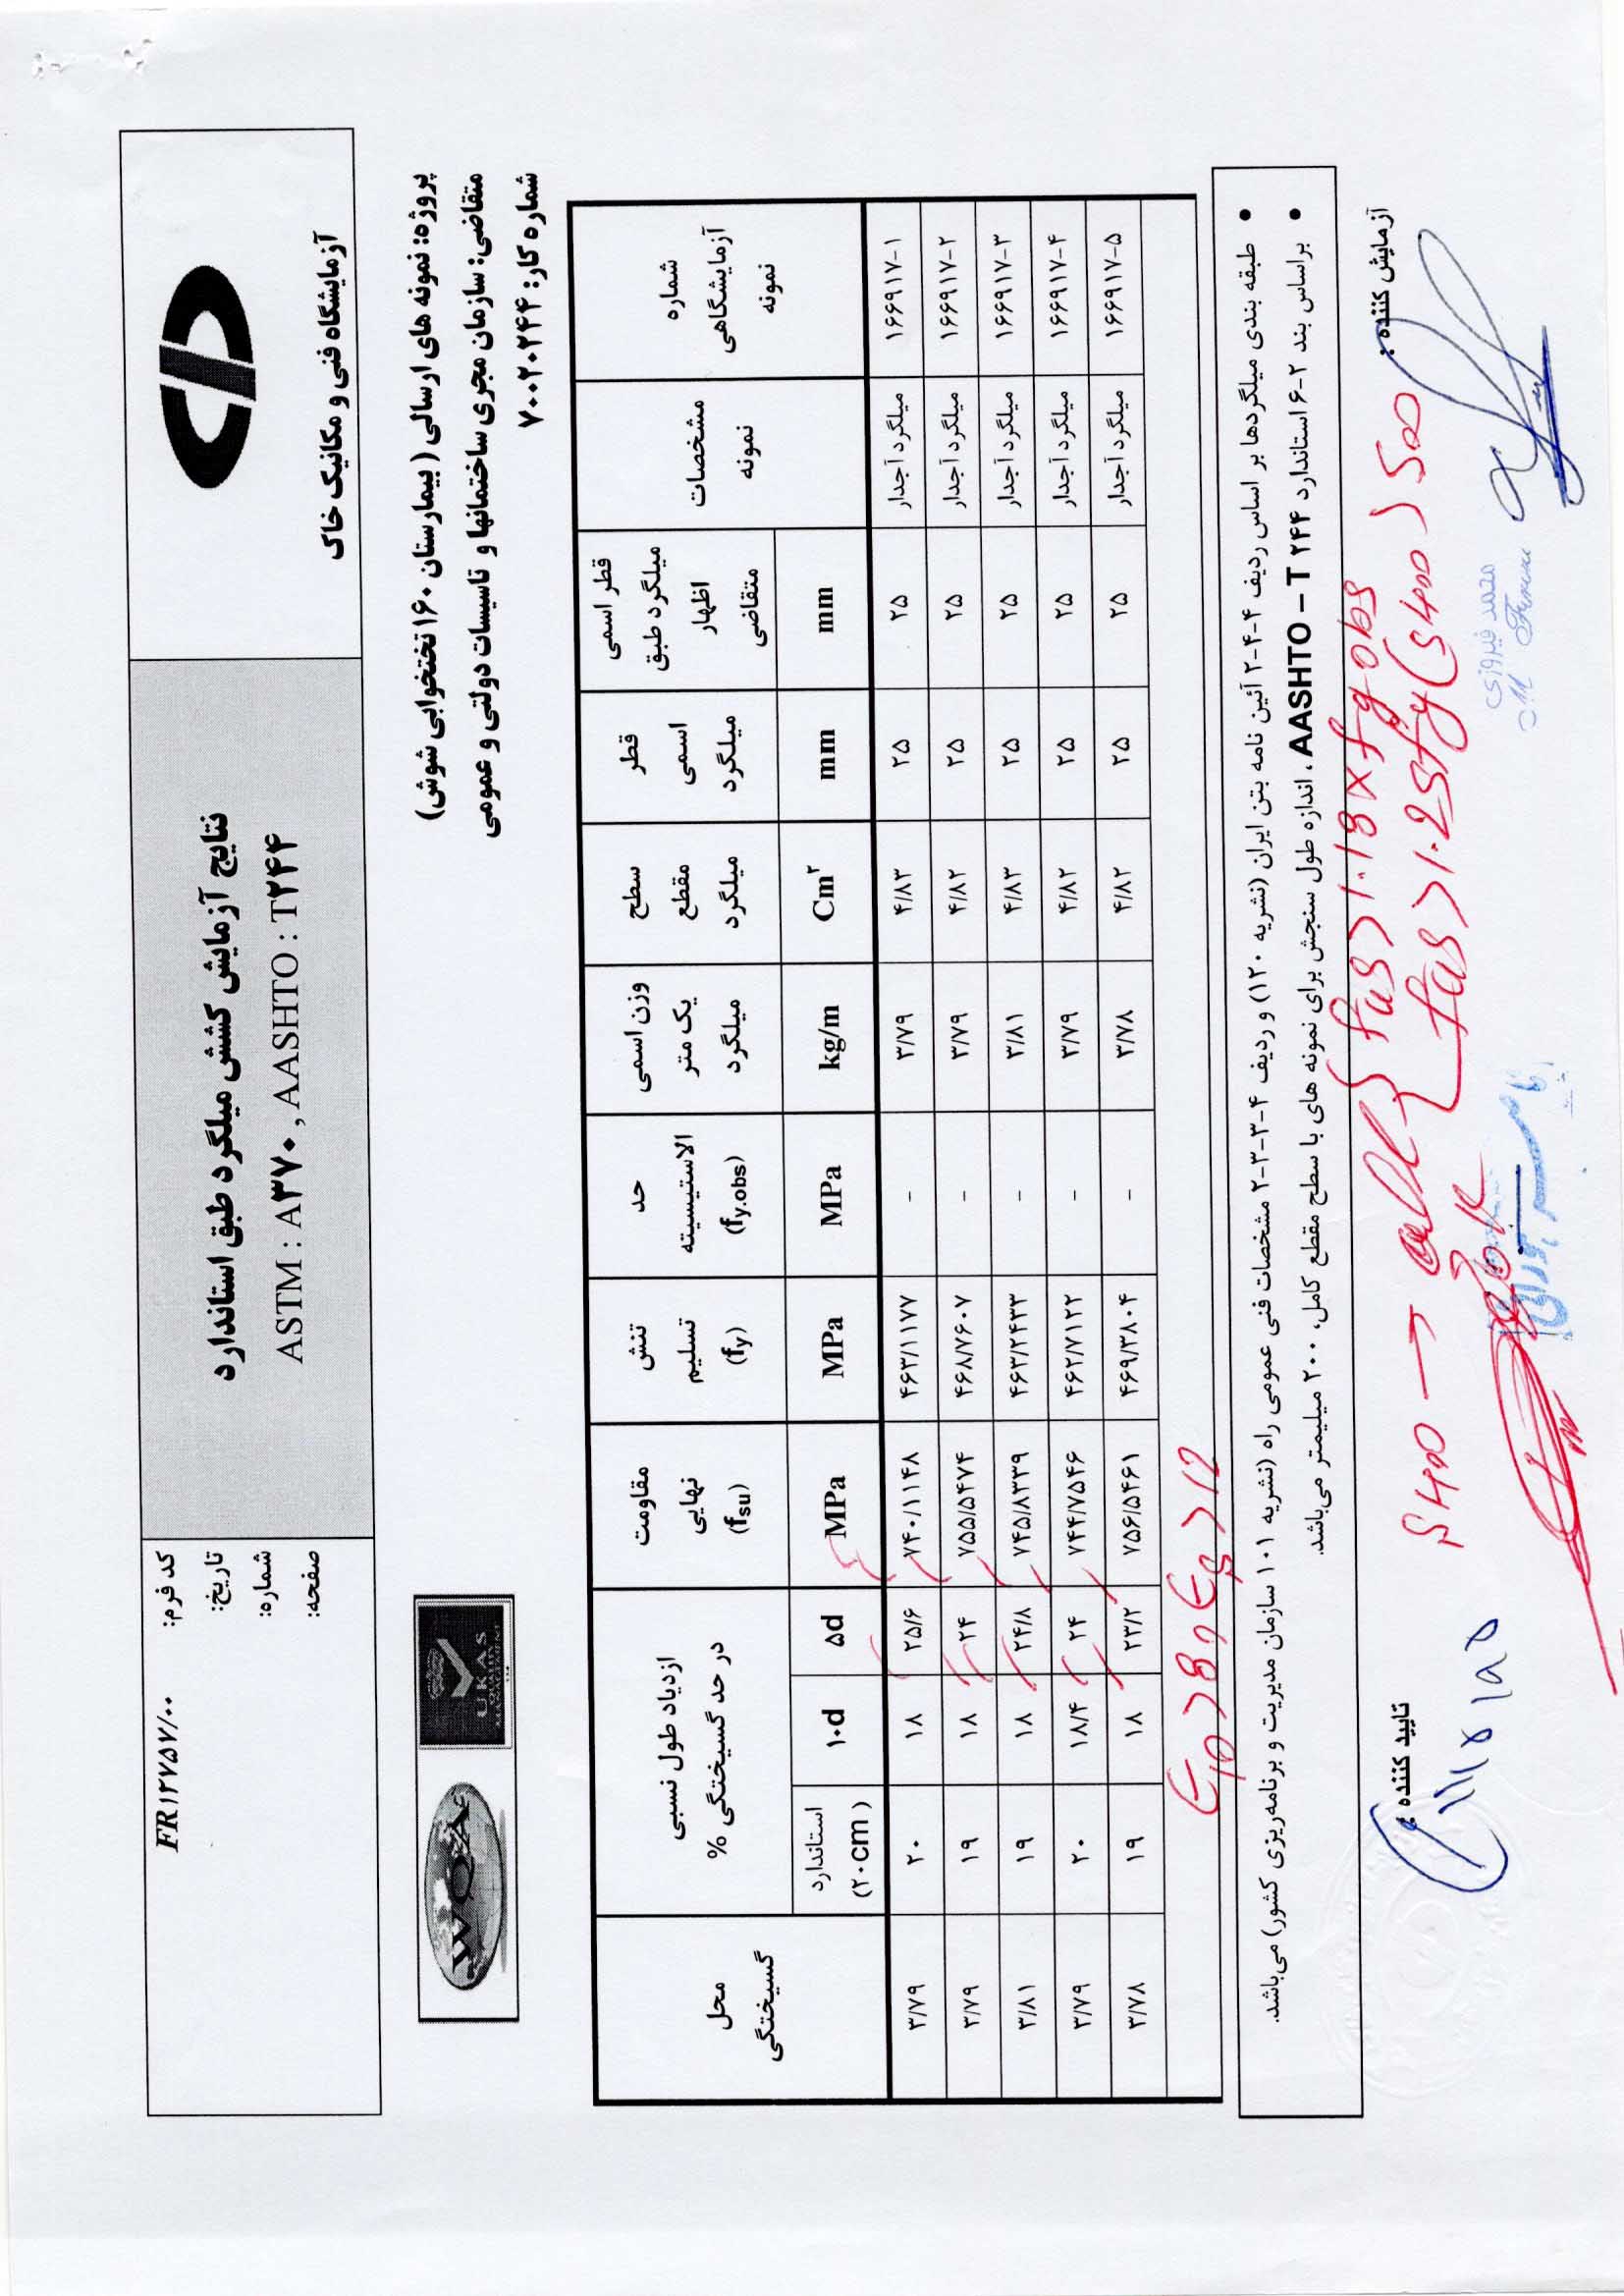 آزمایشگاه فنی و مکانیک خاک
نتایج آزمایش کشش میلگرد طبق استاندارد
ASTM : A۳۷۰ , AASHTO : T۲۴۴
کد فرم: FR۱۲۷۵۷/۰۰
تاریخ:
شماره:
صفحه:
پروژه: نمونه های ارسالی ( بیمارستان ۱۶۰ تختخوابی شوش)
متقاضی: سازمان مجری ساختمانها و تاسیسات دولتی و عمومی
شماره کار: ۷۰۰۲۰۲۴۴
WQA
UKAS
QUALITY
MANAGEMENT
شماره آزمایشگاهی نمونه | مشخصات نمونه | قطر اسمی میلگرد طبق اظهار متقاضی | قطر اسمی میلگرد | سطح مقطع میلگرد | وزن اسمی یک متر میلگرد | حد الاستیسیته (fy.obs) | تنش تسلیم (fy) | مقاومت نهایی (fsu) | ازدیاد طول نسبی در حد گسیختگی % | محل گسیختگی
mm | mm | Cm۲ | kg/m | MPa | MPa | MPa | ۵d | ۱۰d | استاندارد (۲۰cm )
۱۶۶۹۱۷-۱ | میلگرد آجدار | ۲۵ | ۲۵ | ۴/۸۳ | ۳/۷۹ | - | ۴۶۳/۱۱۷۷ | ۷۴۰/۱۱۴۸ | ۲۵/۶ | ۱۸ | ۲۰ | ۳/۷۹
۱۶۶۹۱۷-۲ | میلگرد آجدار | ۲۵ | ۲۵ | ۴/۸۲ | ۳/۷۹ | - | ۴۶۸/۷۶۰۷ | ۷۵۵/۵۴۷۴ | ۲۴ | ۱۸ | ۱۹ | ۳/۷۹
۱۶۶۹۱۷-۳ | میلگرد آجدار | ۲۵ | ۲۵ | ۴/۸۳ | ۳/۸۱ | - | ۴۶۳/۲۴۳۳ | ۷۴۵/۸۳۳۹ | ۲۴/۸ | ۱۸ | ۱۹ | ۳/۸۱
۱۶۶۹۱۷-۴ | میلگرد آجدار | ۲۵ | ۲۵ | ۴/۸۲ | ۳/۷۹ | - | ۴۶۲/۷۱۲۲ | ۷۴۴/۷۵۴۶ | ۲۴ | ۱۸/۴ | ۲۰ | ۳/۷۹
۱۶۶۹۱۷-۵ | میلگرد آجدار | ۲۵ | ۲۵ | ۴/۸۲ | ۳/۷۸ | - | ۴۶۹/۳۸۰۴ | ۷۵۶/۵۴۶۱ | ۲۳/۲ | ۱۸ | ۱۹ | ۳/۷۸
• طبقه بندی میلگردها بر اساس ردیف ۴-۴-۲ آئین نامه بتن ایران (نشریه ۱۲۰) و ردیف ۴-۳-۳-۲ مشخصات فنی عمومی راه (نشریه ۱۰۱ سازمان مدیریت و برنامه‌ریزی کشور) می‌باشد.
• براساس بند ۲-۶ استاندارد AASHTO – T ۲۴۴ ، اندازه طول سنجش برای نمونه های با سطح مقطع کامل، ۲۰۰ میلیمتر می‌باشد.
fus > 1.18 x fy obs
fus > 1.25 fy (S400) 500
S400 →
آزمایش کننده :
محمد فیروزی
تایید کننده :